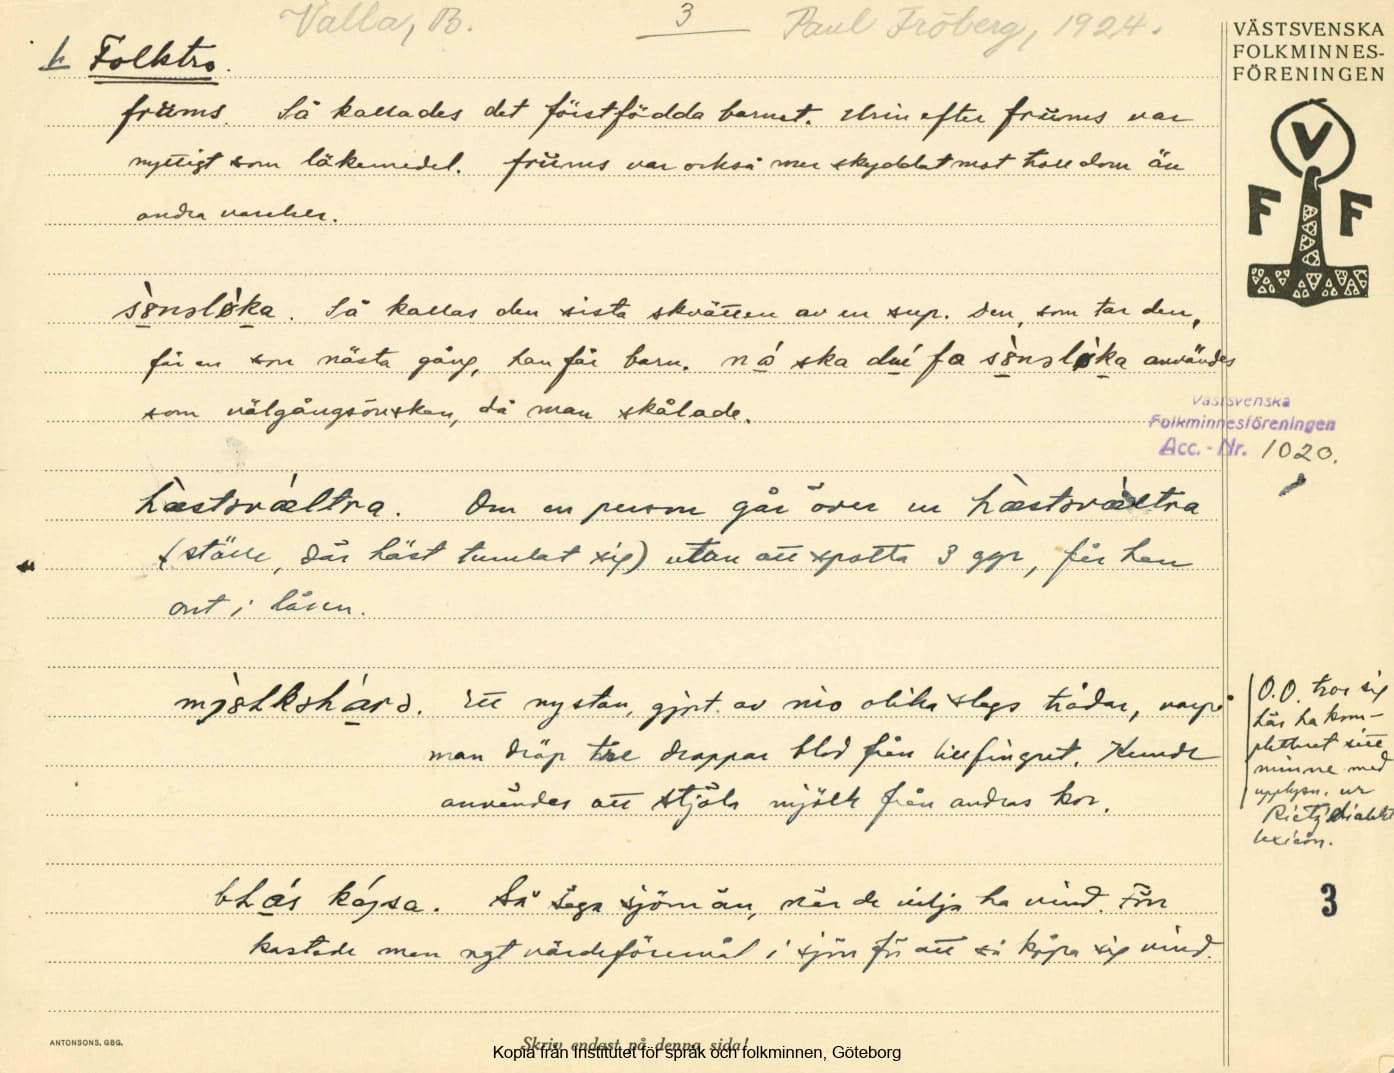 Valla, B. 3 Paul Fröberg, 1924.
VÄSTSVENSKA
FOLKMINNES-
FÖRENINGEN
V
F F
h Folktro.
frúms. Så kallades det förstfödda barnet. Urin efter frúms var
nyttigt som läkemedel. frúms var också mer skyddat mot trolldom än
andra varelser.
sònslóka. Så kallas den sista skvätten av en sup. Den, som tar den,
får en son nästa gång, han får barn. nó ska dú fa sònslóka användes
som välgångsönskan, då man skålade.
Västsvenska
Folkminnesföreningen
Acc.-Nr. 1020.
hæ̀stɔvǽltra. Om en person går över en hæ̀stɔvǽltra
(ställe, där häst tumlat sig) utan att spotta 3 ggr, får han
ont i låren.
Ett nystan, gjort av nio olika slags trådar, varpå
man dröp tre droppar blod från lillfingret. Kunde
användas att stjäla mjölk från andras kor.
O.O. tror sig
här ha kom-
pletterat sitt
minne med
upplysn. ur
Rietz' dialekt
lexicon.
3
bLás kǿpsa. Så säga sjömän, när de vilja ha vind. Förr
kastade man ngt värdeföremål i sjön för att så köpa sig vind.
ANTONSONS, GBG.
Skriv endast på denna sida!
Kopia från Institutet för språk och folkminnen, Göteborg